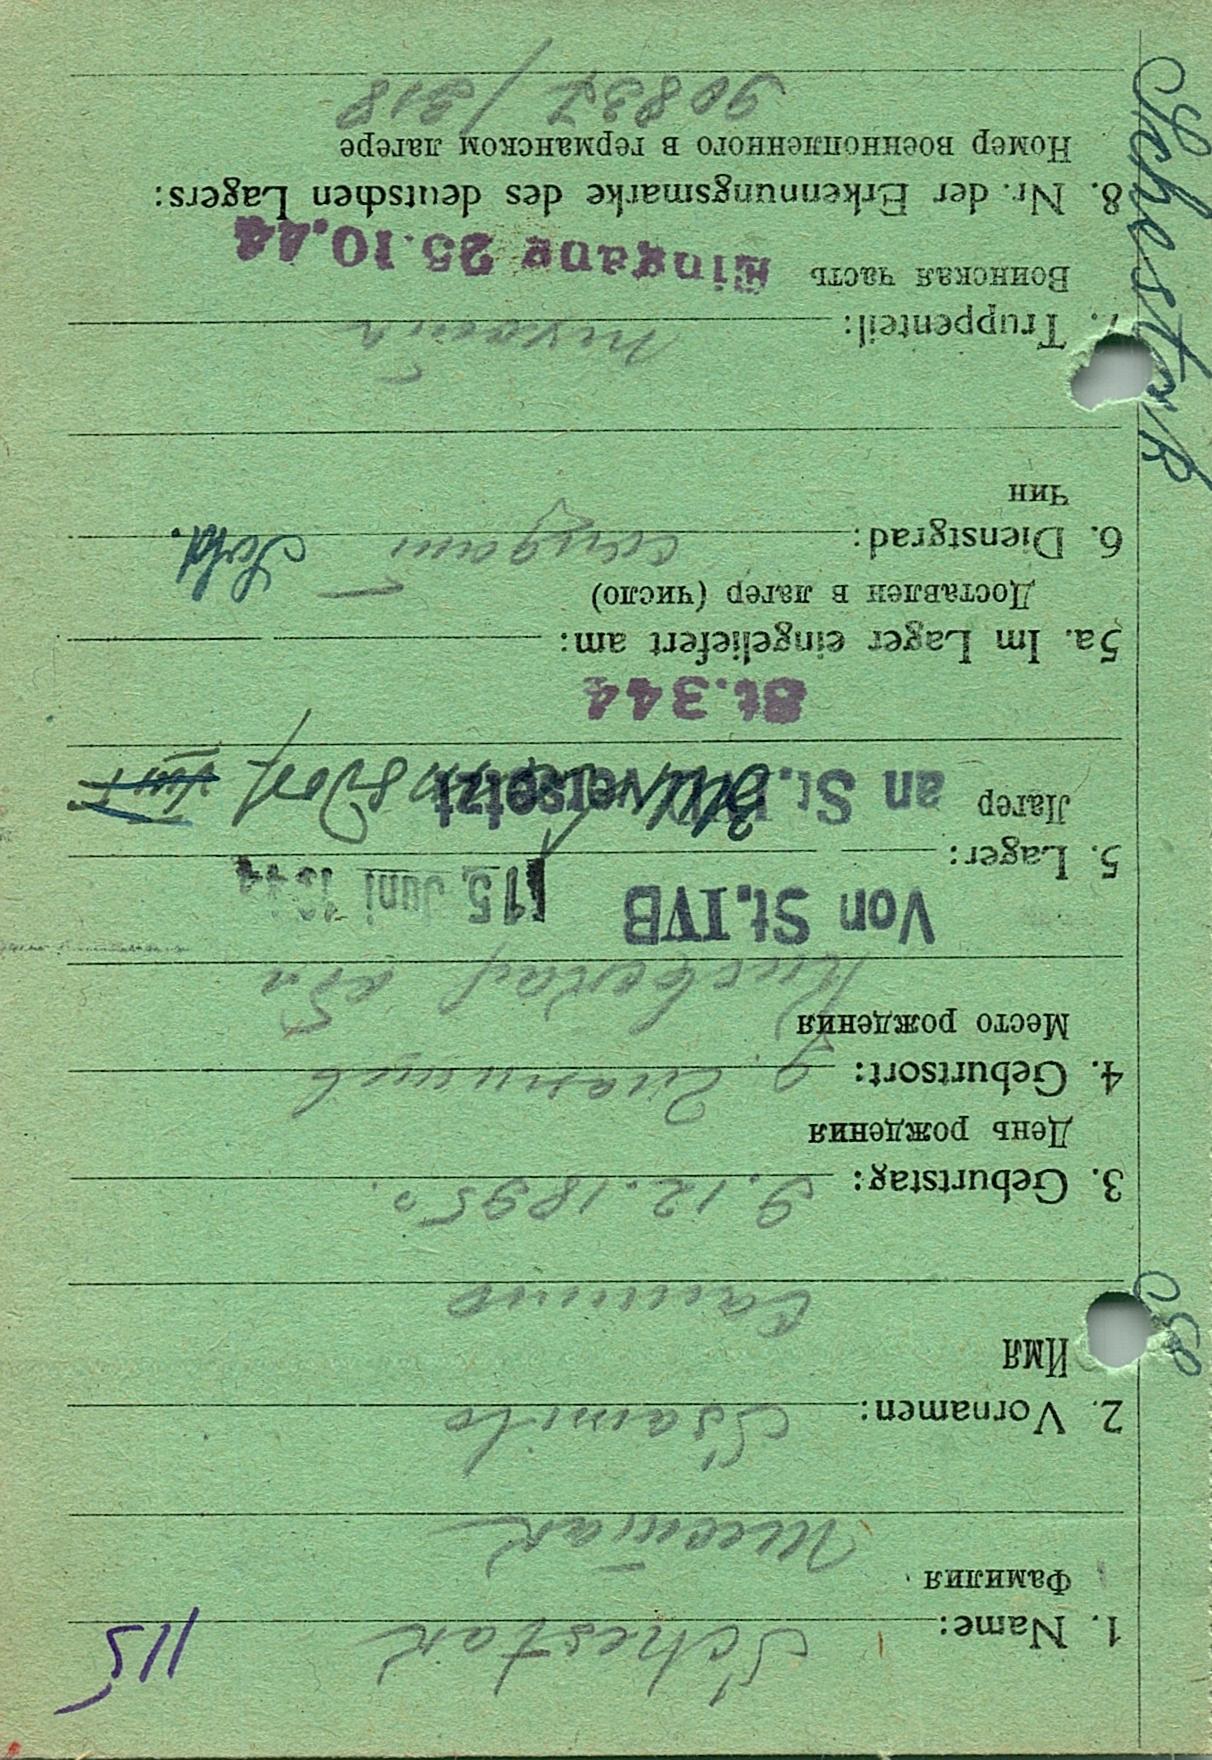 115
1. Name: Schestak
Фамилия
Шестак
2. Vornamen: Csamilo
Имя
3. Geburtstag: 9.12.1895
День рождения
4. Geburtsort:
Место рождения
Von St. IVB 15. Juni 1944
5. Lager:
Лагер an St. versetzt
St. 344
5a. Im Lager eingeliefert am:
Доставлен в лагер (число)
6. Dienstgrad: солдат Sold.
Чин
7. Truppenteil: пехота
Воинская часть Eingang 25.10.44
8. Nr. der Erkennungsmarke des deutschen Lagers:
Номер военнопленного в германском лагере
90837/318
Schestak